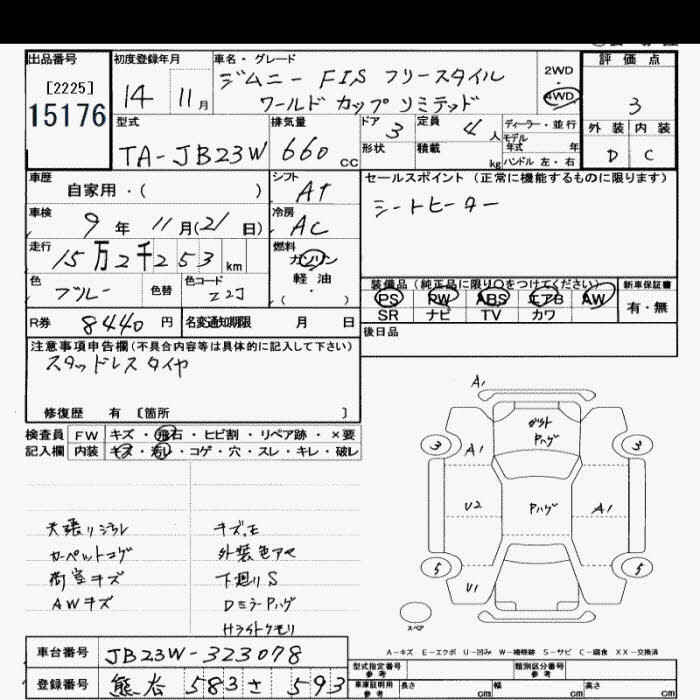 出品番号
[2225]
15176
初度登録年月
14 11月
車名・グレード
ジムニー FIS フリースタイル
ワールド カップリミテッド
2WD
・
4WD
評価点
3
外装 内装
D C
型式
TA-JB23W
排気量
660 cc
ドア 3
形状
定員 4 人
積載 kg
ディーラー・並行
モデル
年式 年
ハンドル 左・右
車歴
自家用・( )
シフト
AT
車検
9年 11月(21日)
冷房
AC
走行
15万2千253km
燃料
ガソリン
軽油
・
( )
色
ブルー
色替
色コード
Z2J
R券 8440円
名変通知期限 月 日
セールスポイント(正常に機能するものに限ります)
シートヒーター
装備品(純正品に限り○をつけてください)
PS PW ABS エアB AW
SR ナビ TV カワ
新車保証書
有・無
後日品
注意事項申告欄(不具合内容等は具体的に記入して下さい)
スタッドレスタイヤ
修復歴 有 [箇所 ]
検査員 FW キズ・飛石・ヒビ割・リペア跡・×要
記入欄 内装 キズ・汚レ・コゲ・穴・スレ・キレ・破レ
天張リシワレ
カーペットコゲ
荷室キズ
AWキズ
キズ,モ
外装色アセ
下廻りS
DミラーPハゲ
Hライトクモリ
A1
ダクト
Pハゲ
3 A1 3
U2 Pハゲ A1
5 5
U1
スペア
A-キズ E-エクボ U-凹み W-補修跡 S-サビ C-腐食 XX-交換済
車台番号 JB23W-323078
登録番号 熊谷 583 さ 593
型式指定番号
参考
類別区分番号
参考
車庫証明用
参考
長さ cm 幅 cm 高さ cm